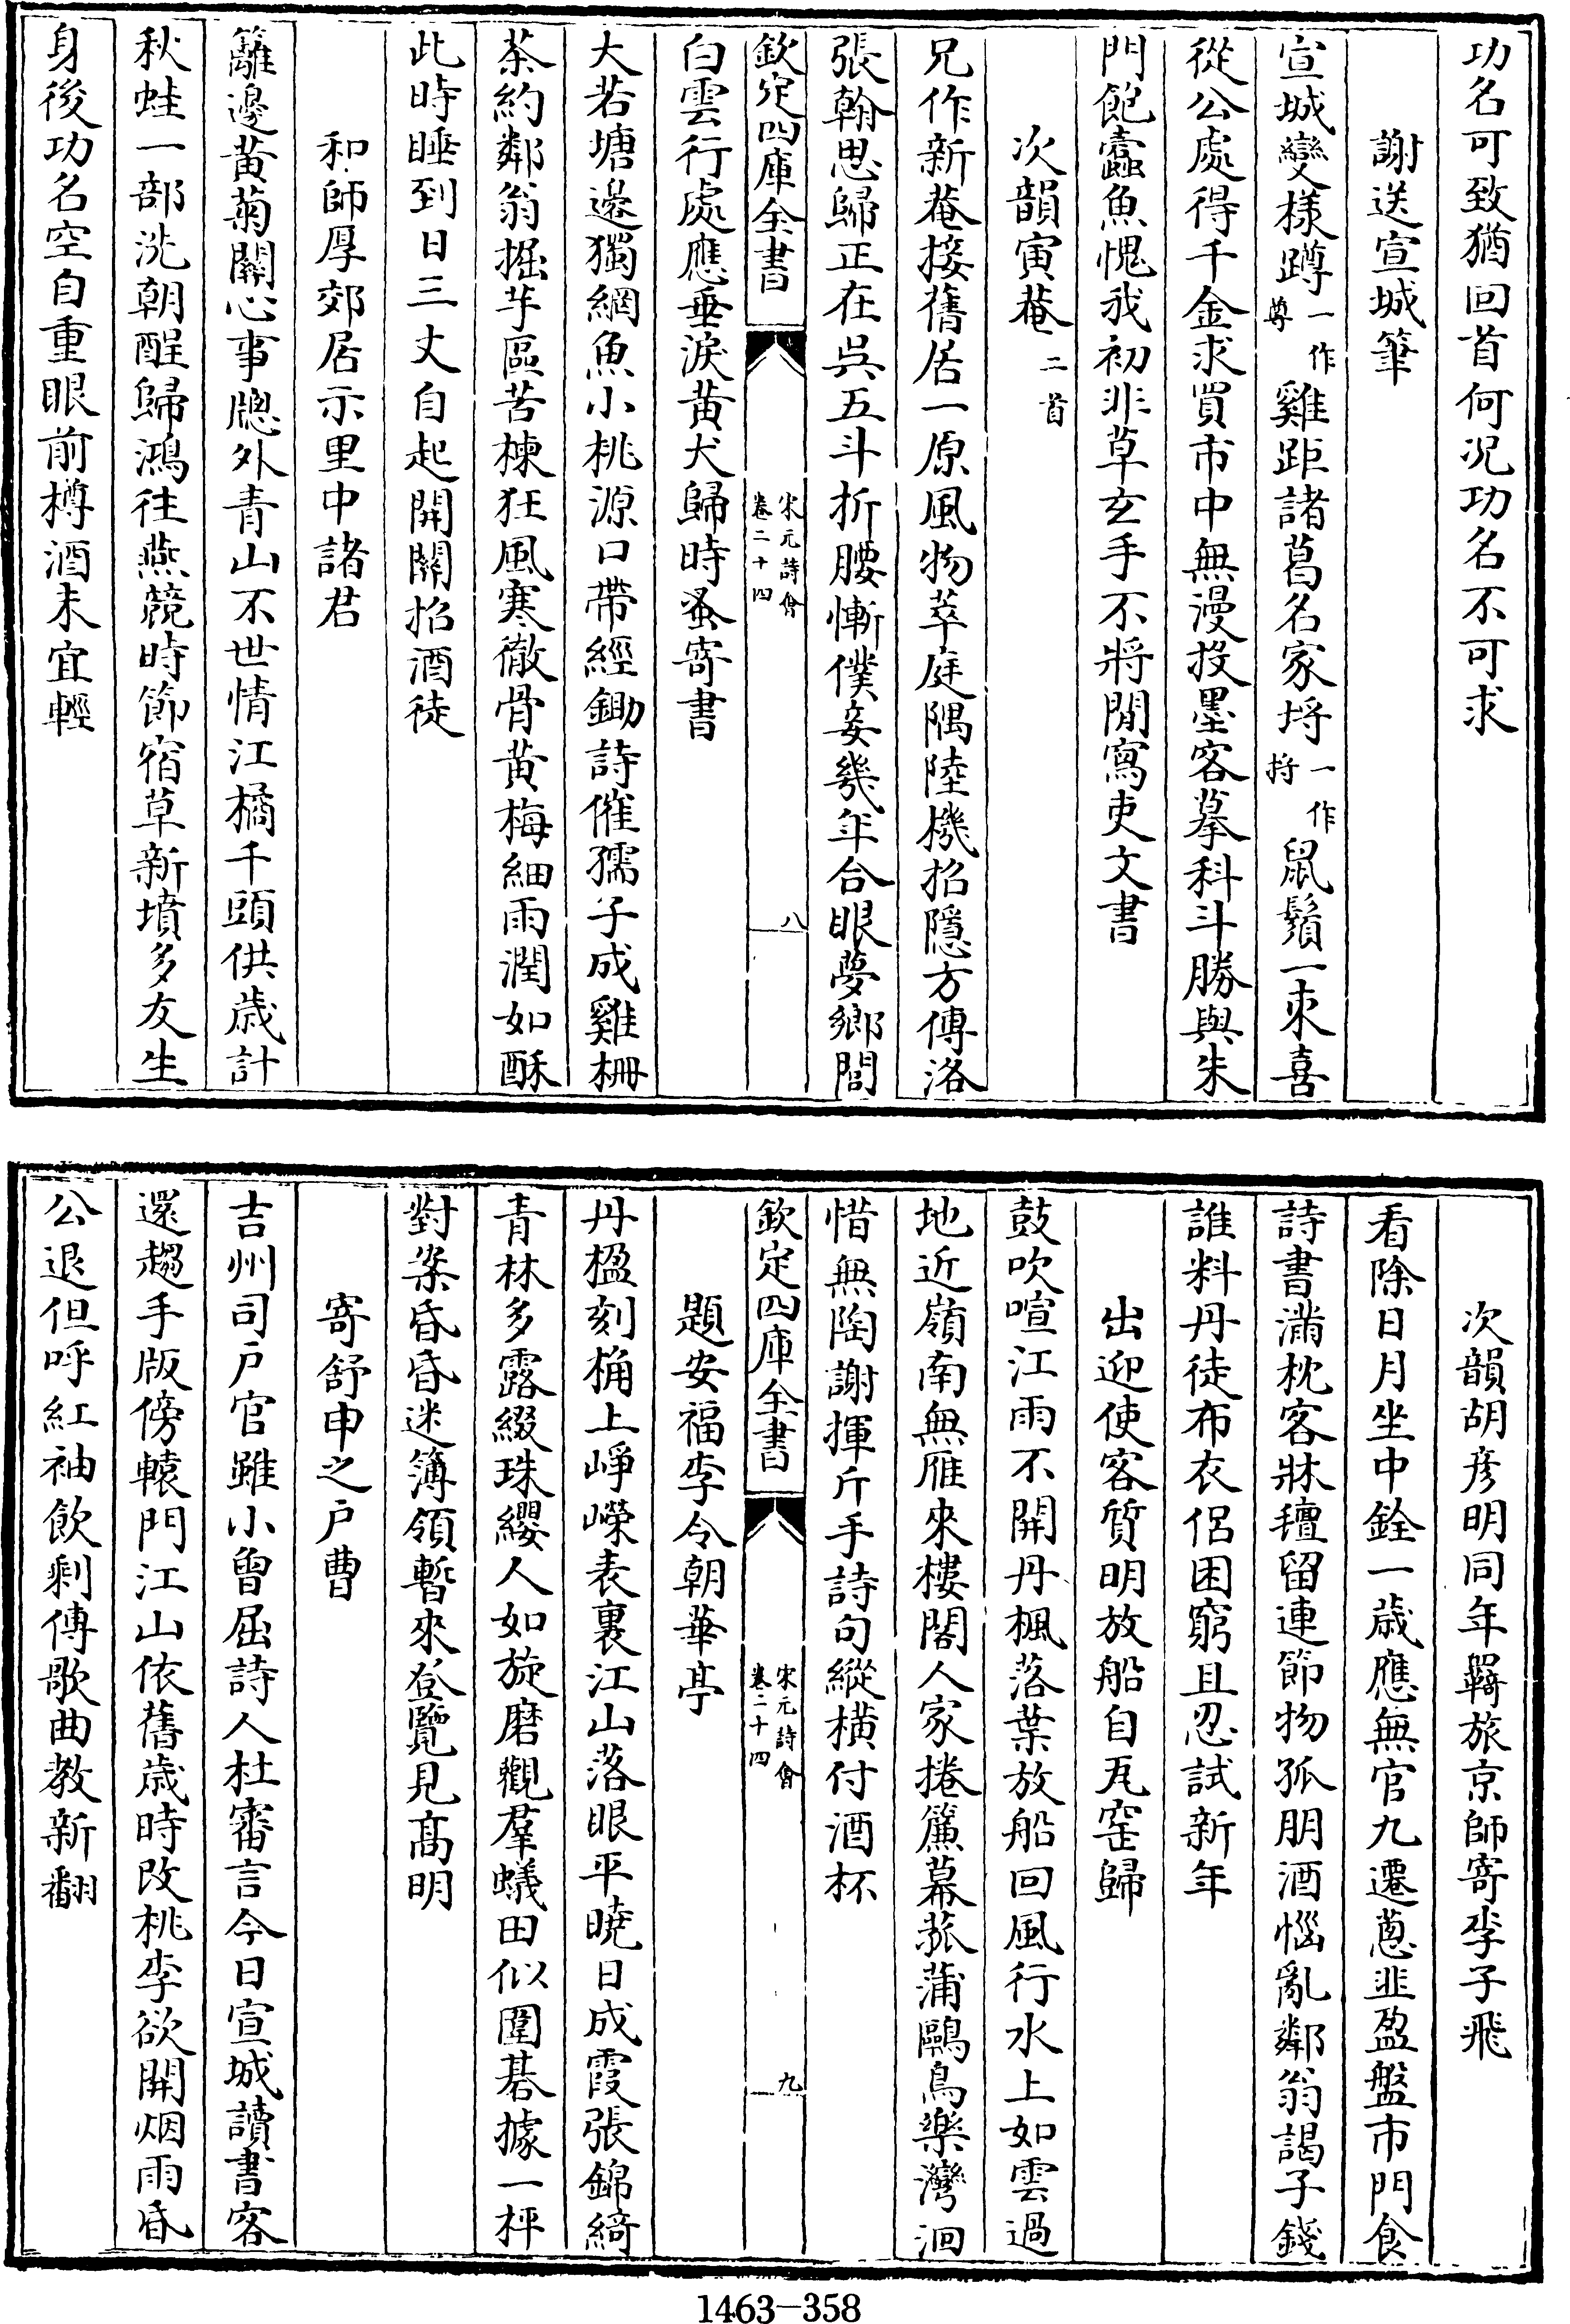 功名可致猶回首何况功名不可求
謝送宣城筆
宣城變様蹲一作尊雞距諸葛名家埒一作捋鼠鬚一束喜
從公處得千金求買市中無漫投墨客摹科斗勝與朱
門飽蠧魚愧我初非草玄手不將閒寫吏文書
次韻寅菴二首
兄作新菴接舊居一原風物萃庭隅陸機招隠方傳洛
張翰思歸正在吳五斗折腰慚僕妾幾年合眼夢鄉閭
欽定四庫全書
宋元詩㑹
卷二十四
八
白雲行處應垂淚黄犬歸時蚤寄書
大若塘邊獨網魚小桃源口帶經鋤詩催孺子成雞柵
茶約鄰翁掘芋區苦楝狂風寒徹骨黄梅細雨潤如酥
此時睡到日三丈自起開闗招酒徒
和師厚郊居示里中諸君
籬邊黄菊關心事牎外青山不世情江橘千頭供歳計
秋蛙一部洗朝酲歸鴻往燕競時節宿草新墳多友生
身後功名空自重眼前樽酒未宜輕
次韻胡彦明同年羇旅京師寄李子飛
看除日月坐中銓一歳應無官九遷蔥韭盈盤市門食
詩書滿枕客牀氊留連節物孤朋酒惱亂鄰翁謁子錢
誰料丹徒布衣侣困窮且忍試新年
出迎使客質明放船自瓦窑歸
鼓吹喧江雨不開丹楓落葉放船回風行水上如雲過
地近嶺南無雁來樓閣人家捲簾幕菰蒲鷗鳥樂灣洄
惜無陶謝揮斤手詩句縱横付酒杯
欽定四庫全書
宋元詩㑹
卷二十四
九
題安福李令朝華亭
丹楹刻桷上崢嶸表裏江山落眼平曉日成霞張錦綺
青林多露綴珠纓人如旋磨觀羣蟻田似圍碁據一枰
對案昏昏迷簿領暫來登覽見髙明
寄舒申之户曹
吉州司户官雖小曽屈詩人杜審言今日宣城讀書客
還趨手版傍轅門江山依舊歳時改桃李欲開烟雨昏
公退但呼紅袖飲剩傳歌曲教新翻
1463-358